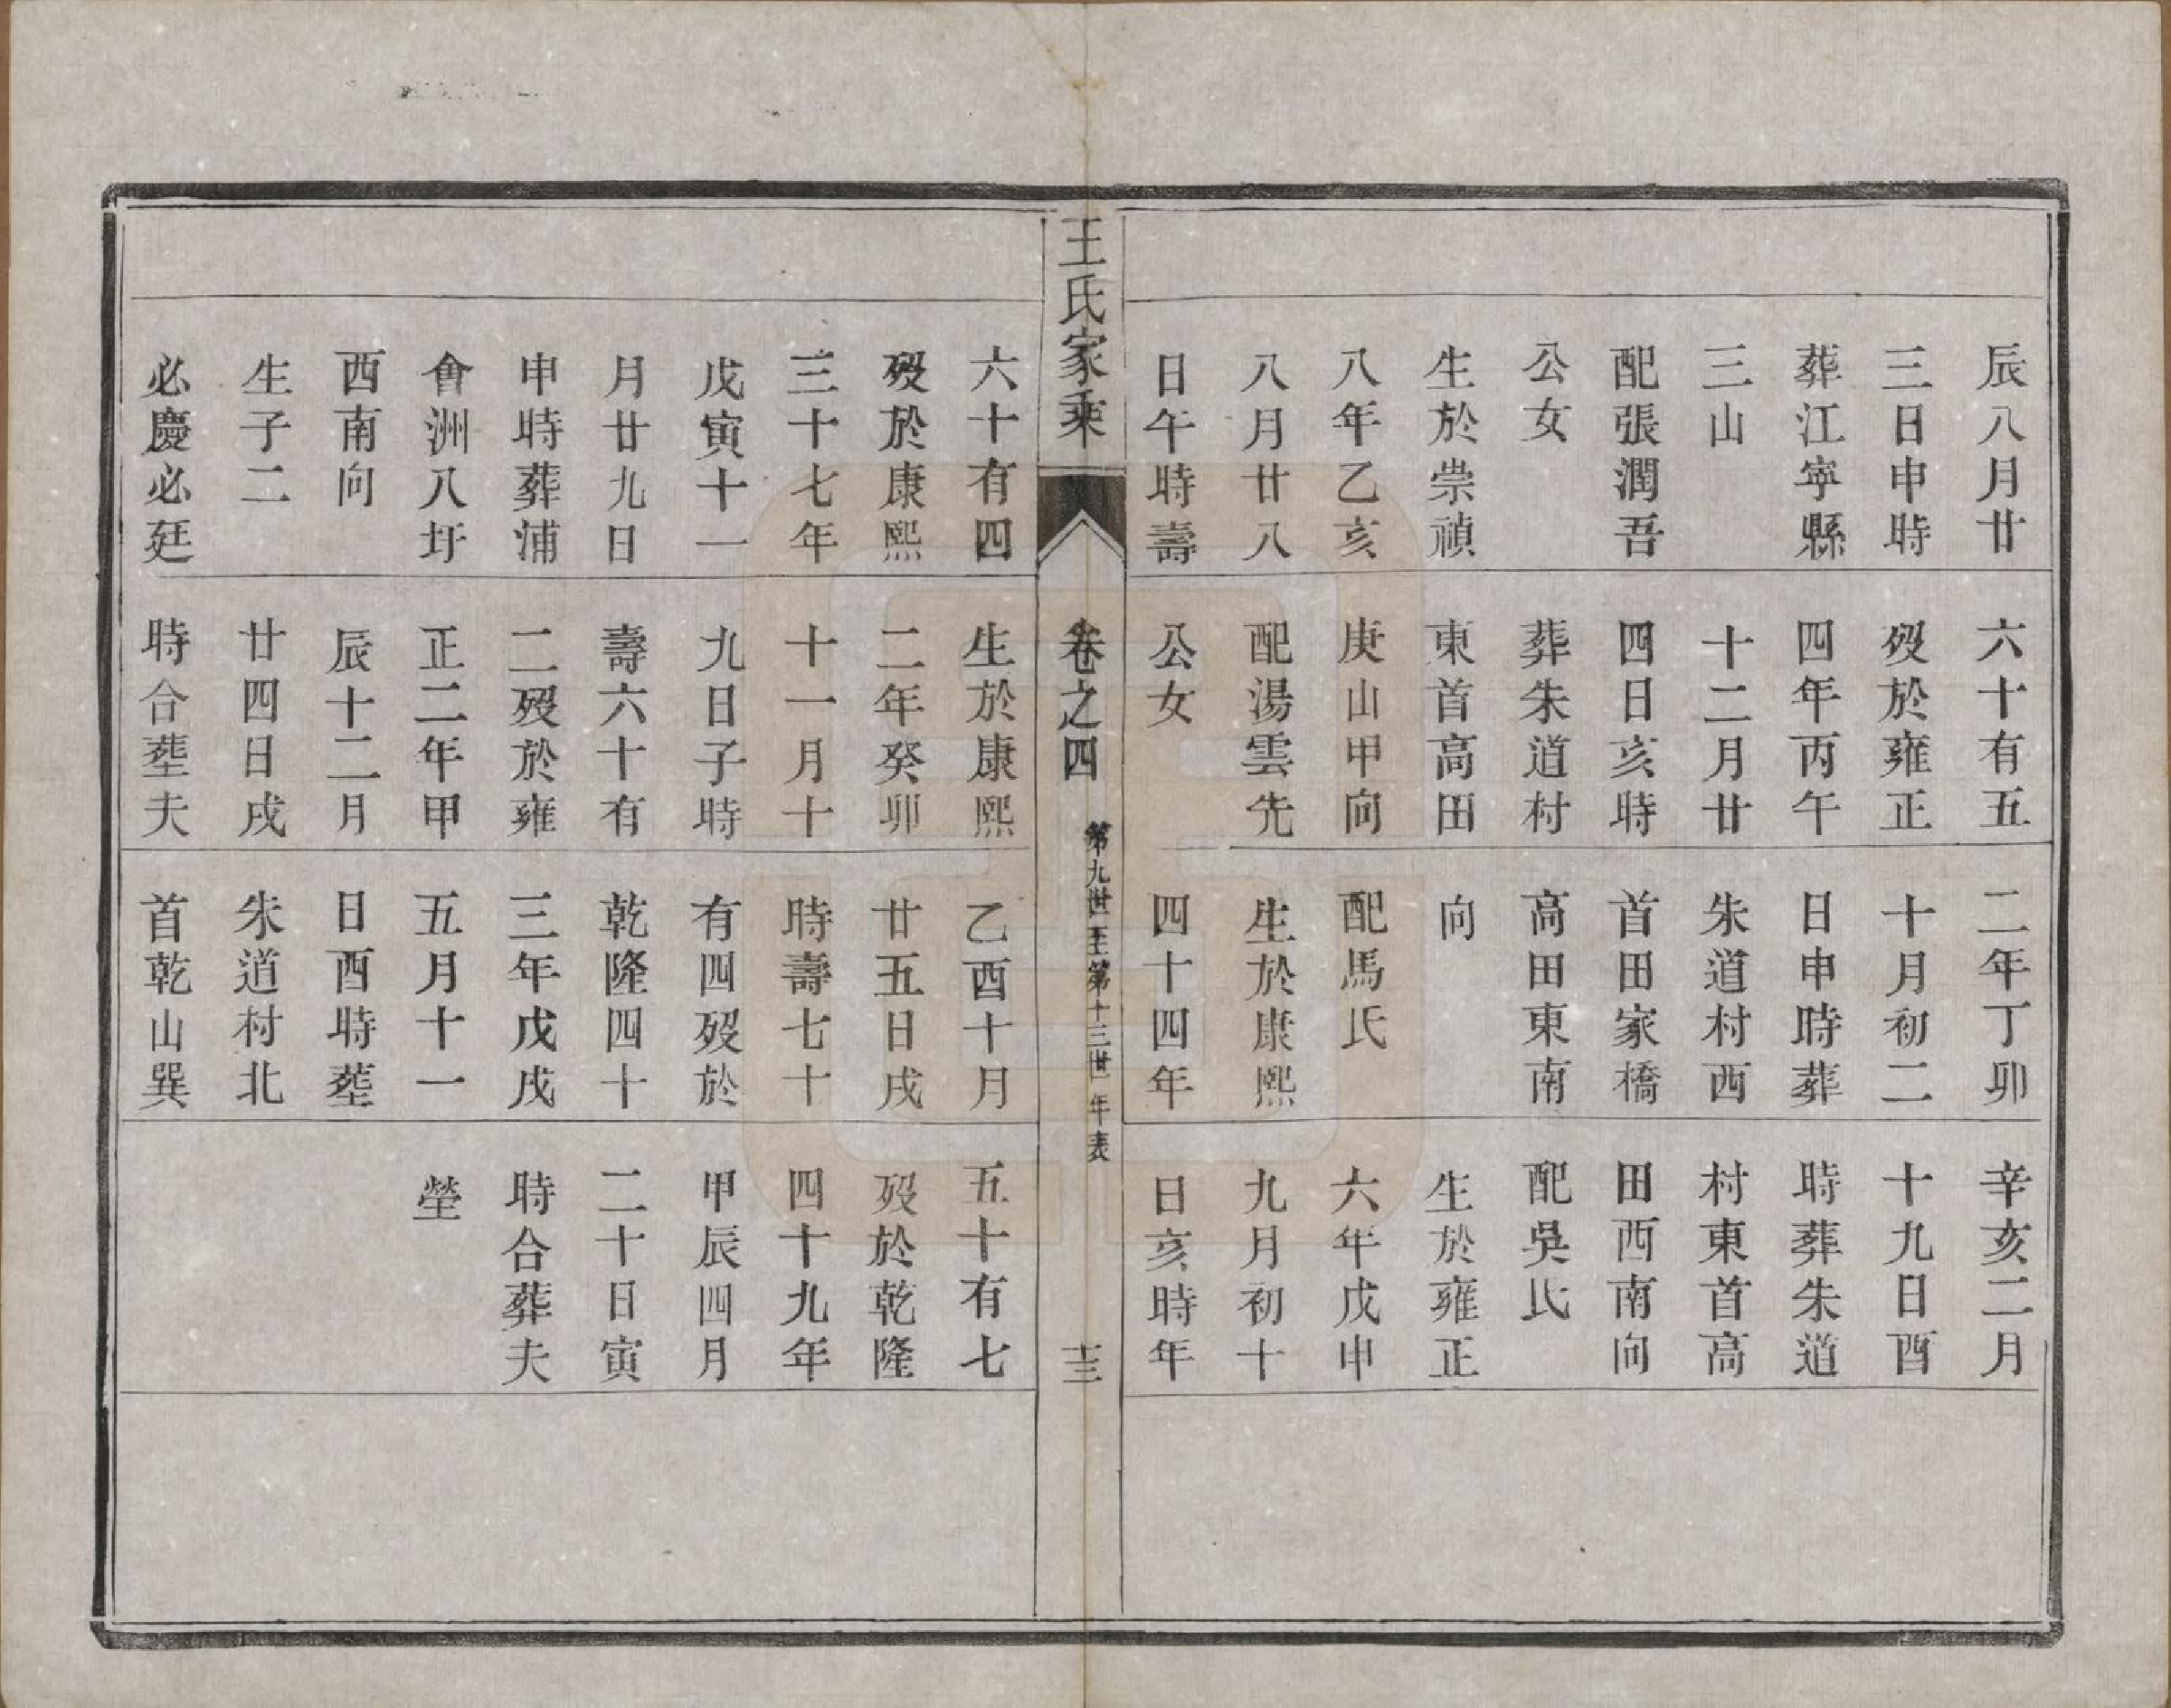 辰八月廿
三日申時
葬江寧縣
三山
配張潤吾
公女
生於崇禎
八年乙亥
八月廿八
日午時壽
六十有五
歿於雍正
四年丙午
十二月廿
四日亥時
葬朱道村
東首高田
庚山甲向
配湯雲先
公女
二年丁卯
十月初二
日申時葬
朱道村西
首田家橋
高田東南
向
配馬氏
生於康熙
四十四年
辛亥二月
十九日酉
時葬朱道
村東首高
田西南向
配吳氏
生於雍正
六年戊申
九月初十
日亥時年
王氏家乘
卷之四
第九世至第十三世年表
十三
六十有四
歿於康熙
三十七年
戊寅十一
月廿九日
申時葬浦
會洲八圩
西南向
生子二
必慶必廷
生於康熙
二年癸卯
十一月十
九日子時
壽六十有
二歿於雍
正二年甲
辰十二月
廿四日戌
時合塟夫
乙酉十月
廿五日戌
時壽七十
有四歿於
乾隆四十
三年戊戌
五月十一
日酉時塟
朱道村北
首乾山巽
五十有七
歿於乾隆
四十九年
甲辰四月
二十日寅
時合葬夫
塋